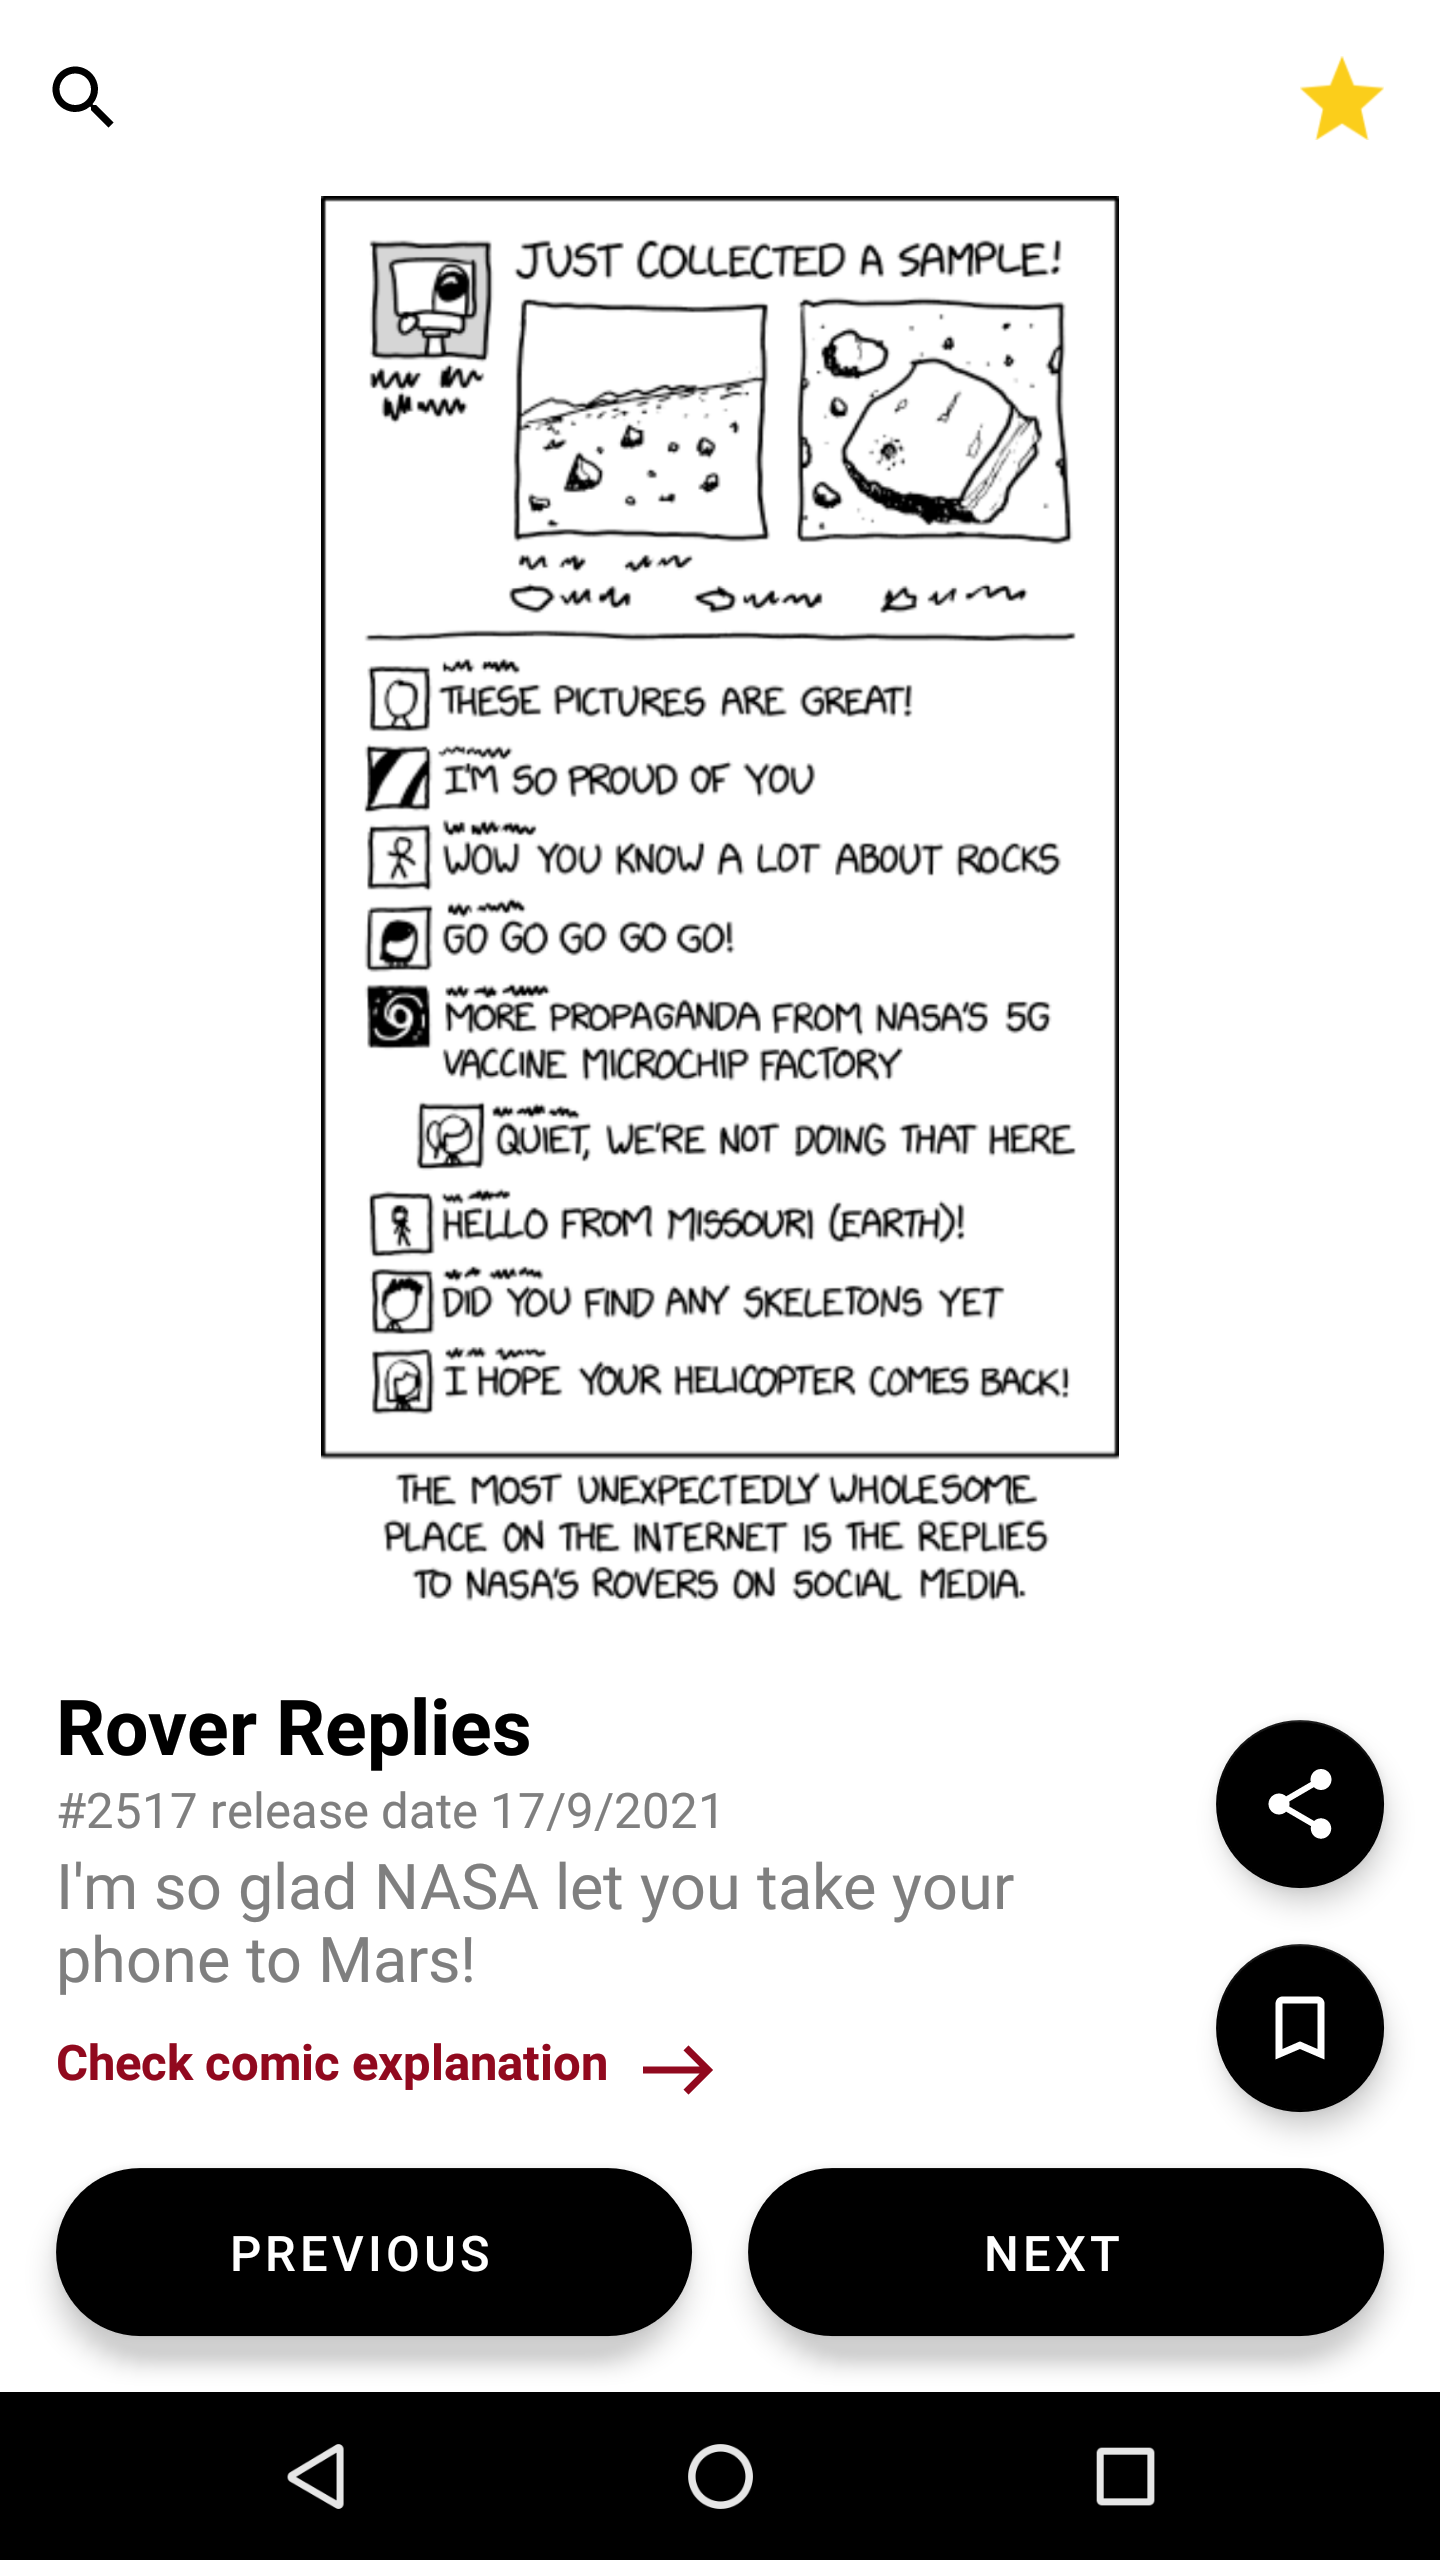 JUST COLLECTED A SAMPLE!
THESE PICTURES ARE GREAT!
I'M SO PROUD OF YOU
WOW YOU KNOW A LOT ABOUT ROCKS
GO GO GO GO GO!
MORE PROPAGANDA FROM NASA'S 5G
VACCINE MICROCHIP FACTORY
QUIET, WE'RE NOT DOING THAT HERE
HELLO FROM MISSOURI (EARTH)!
DID YOU FIND ANY SKELETONS YET
I HOPE YOUR HELICOPTER COMES BACK!
THE MOST UNEXPECTEDLY WHOLESOME
PLACE ON THE INTERNET IS THE REPLIES
TO NASA'S ROVERS ON SOCIAL MEDIA.
Rover Replies
#2517 release date 17/9/2021
I'm so glad NASA let you take your
phone to Mars!
Check comic explanation
PREVIOUS
NEXT